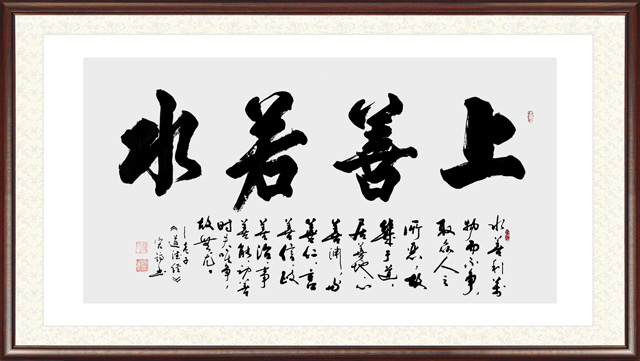 上善若水
水善利萬
物而不争，
处众人之
所恶，故
幾于道，
居善地，心
善渊，与
善仁，言
善信，政
善治，事
善能，动善
时，夫唯不争，
故無尤。
—老子
《道德经》